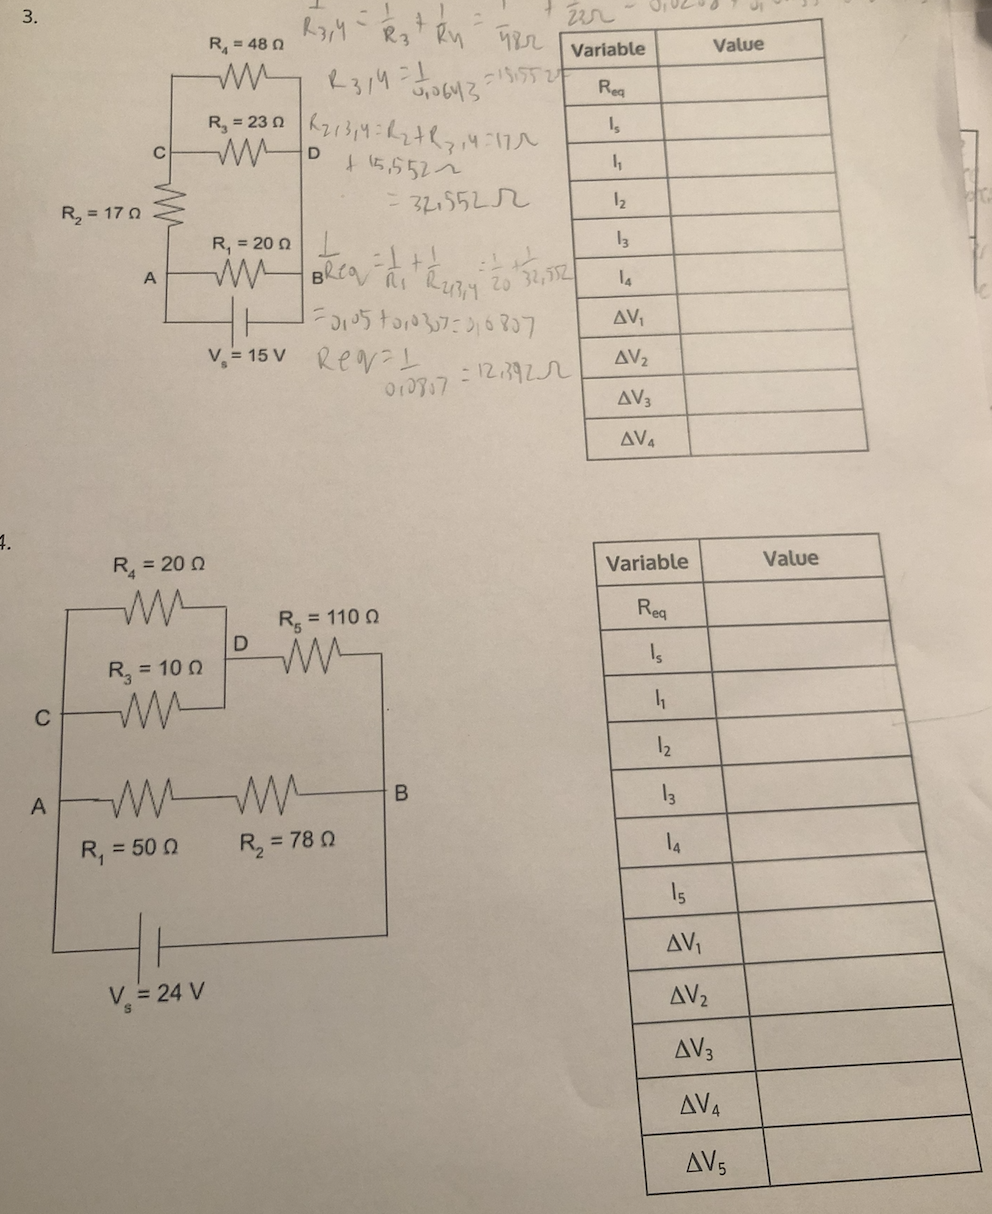 3.
R₄ = 48 Ω
R₃ = 23 Ω
C
D
R₂ = 17 Ω
R₁ = 20 Ω
A
B
Vₛ = 15 V
1/R3,4 = 1/R3 + 1/R4 = 1/48Ω + 1/23Ω
R3,4 = 1/0,0643 = 15,552
R2,3,4 = R2 + R3,4 = 17Ω
+ 15,552Ω
= 32,552Ω
1/Req = 1/R1 + 1/R2,3,4 = 1/20 + 1/32,552
= 0,05 + 0,0307 = 0,0807
Req = 1/0,0807 = 12,392Ω
Variable Value
Req
Is
I₁
I₂
I₃
I₄
ΔV₁
ΔV₂
ΔV₃
ΔV₄
4.
R₄ = 20 Ω
R₅ = 110 Ω
D
R₃ = 10 Ω
C
A
B
R₁ = 50 Ω
R₂ = 78 Ω
Vₛ = 24 V
Variable Value
Req
Is
I₁
I₂
I₃
I₄
I₅
ΔV₁
ΔV₂
ΔV₃
ΔV₄
ΔV₅